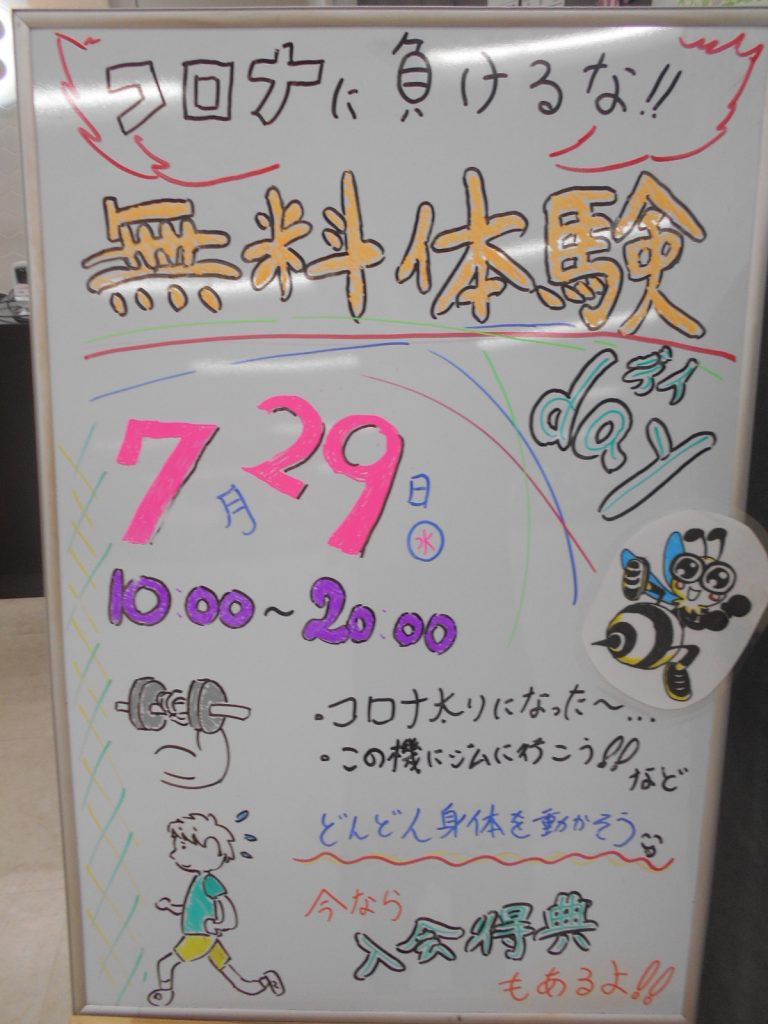 コロナに負けるな!!
無料体験
デイ
day
7月29日㊌
10:00~20:00
・コロナ太りになった~...
・この機にジムに行こう!!
など
どんどん身体を動かそう
今なら
入会得典
もあるよ!!